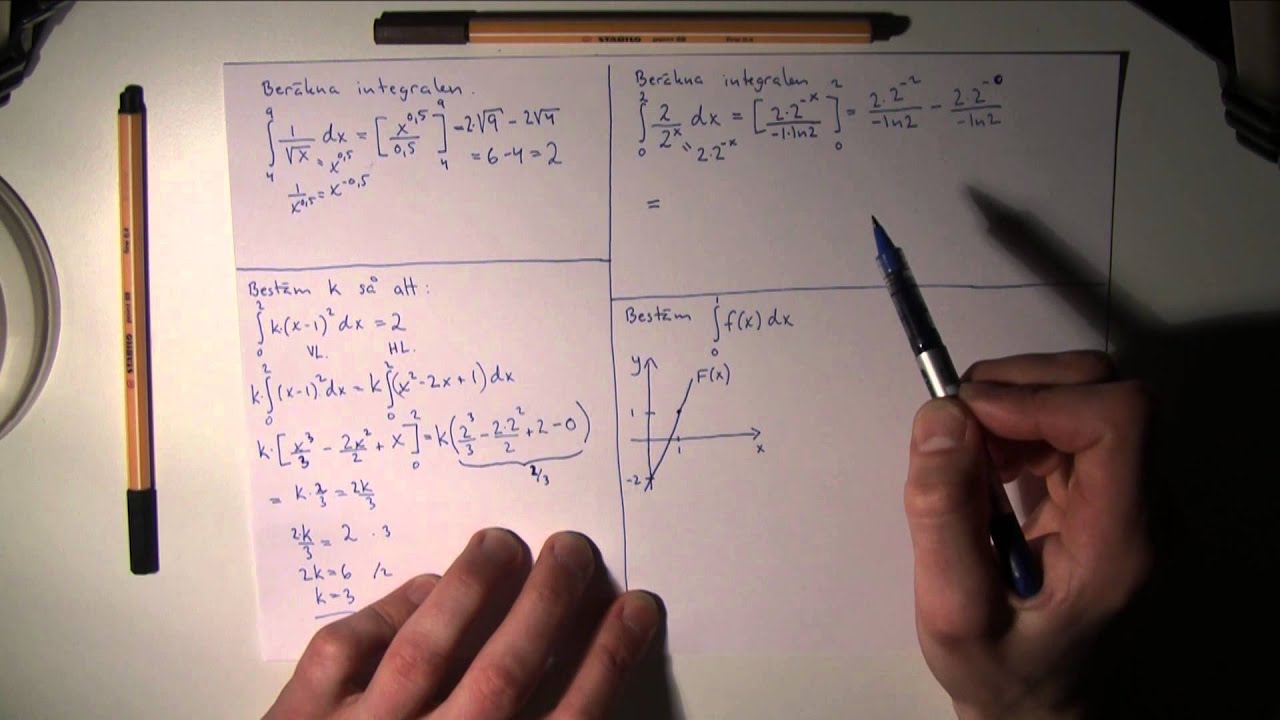 STABILO point 88 fine 0.4
Beräkna integralen.
∫₄⁹ 1/√x dx = [x^0,5/0,5]₄⁹ = 2·√9 - 2√4
= x^0,5
= 6 - 4 = 2
1/x^0,5 = x^-0,5
Beräkna integralen
∫₀² 2/2^x dx = [2·2^-x/-1·ln2]₀² = 2·2^-2/-ln2 - 2·2^-0/-ln2
= 2·2^-x
=
Bestäm k så att:
∫₀² k·(x-1)² dx = 2
VL. HL.
k·∫₀² (x-1)² dx = k∫₀² (x² - 2x + 1) dx
k·[x³/3 - 2x²/2 + x]₀² = k(2³/3 - 2·2²/2 + 2 - 0)
2/3
= k·2/3 = 2k/3
2·k/3 = 2 ·3
2k = 6 /2
k = 3
Bestäm ∫₀¹ f(x) dx
y
F(x)
1
1
x
-2
STABILO